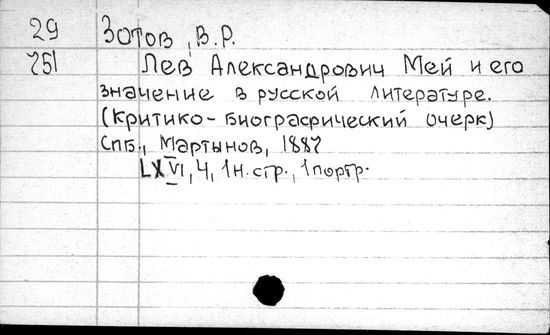 29 Зотов, В.Р.
751 Лев Александрович Мей и его
значение в русской литературе.
(Критико-биографический очерк)
Спб., Мартынов, 1887
LXVI, 4, 1н.стр., 1портр.